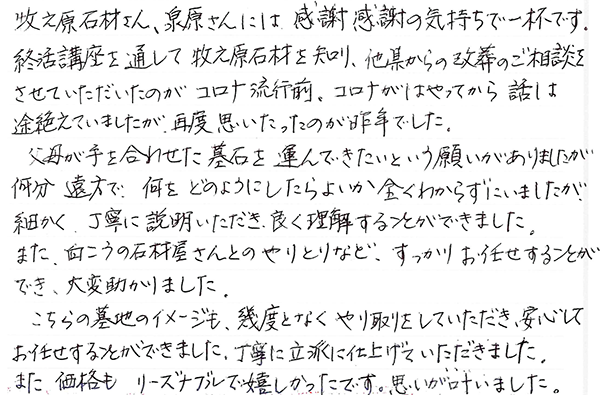 牧之原石材さん、泉原さんには感謝感謝の気持ちで一杯です。
終活講座を通して牧之原石材を知り、他県からの改葬のご相談を
させていただいたのがコロナ流行前。コロナがはやってから話は
途絶えていましたが、再度思いたったのが昨年でした。
父母が手を合わせた墓石を運んできたいという願いがありましたが
何分遠方で、何をどのようにしたらよいか全くわからずにいましたが、
細かく、丁寧に説明いただき、良く理解することができました。
また、向こうの石材屋さんとのやりとりなど、すっかりお任せすることが
でき、大変助かりました。
こちらの墓地のイメージも、幾度となくやり取りをしていただき、安心して
お任せすることができました。丁寧に立派に仕上げていただきました。
また価格もリーズナブルで嬉しかったです。思いが叶いました。